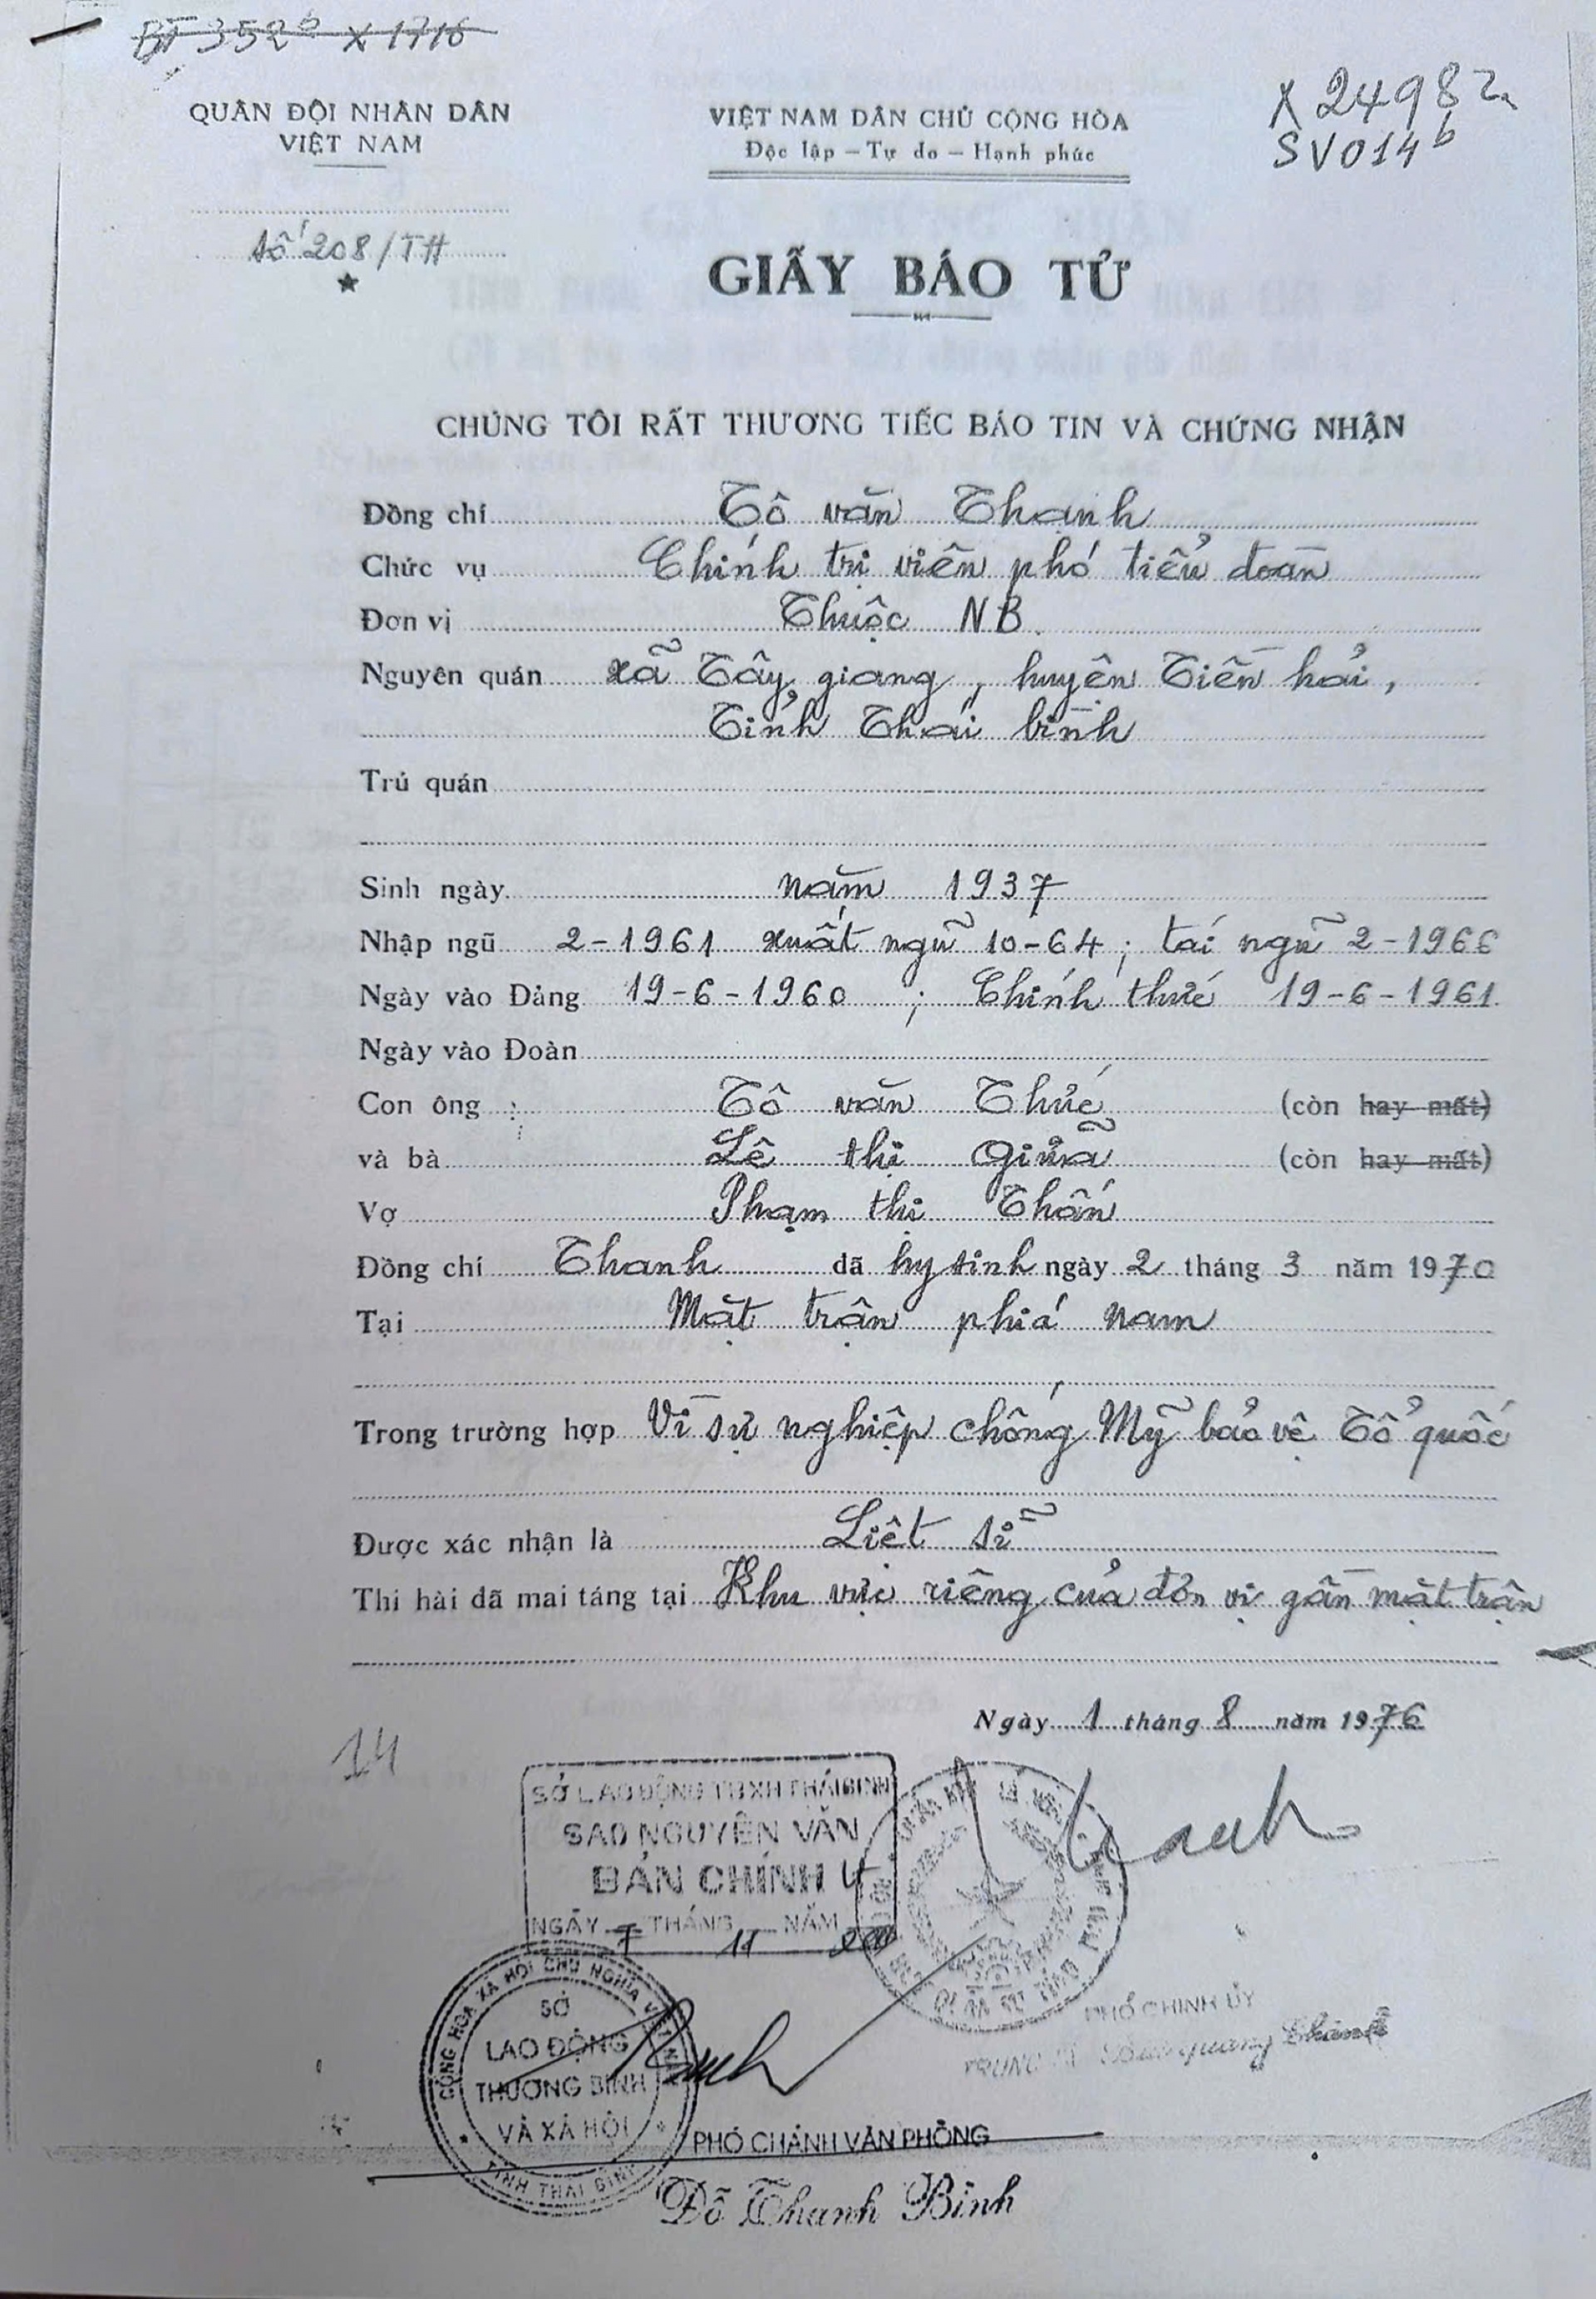 BT 352b X 1716
X 24982a
SV014b
QUÂN ĐỘI NHÂN DÂN
VIỆT NAM
VIỆT NAM DÂN CHỦ CỘNG HÒA
Độc lập – Tự do – Hạnh phúc
Số 208/TH
GIẤY BÁO TỬ
CHÚNG TÔI RẤT THƯƠNG TIẾC BÁO TIN VÀ CHỨNG NHẬN
Đồng chí Tô văn Thanh
Chức vụ Chính trị viên phó tiểu đoàn
Đơn vị Thuộc NB
Nguyên quán xã Tây giang, huyện Tiền hải,
Tỉnh Thái bình
Trú quán
Sinh ngày năm 1937
Nhập ngũ 2-1961 xuất ngũ 10-64; tái ngũ 2-1966
Ngày vào Đảng 19-6-1960 ; Chính thức 19-6-1961
Ngày vào Đoàn
Con ông Tô văn Thức (còn hay mất)
và bà Lê thị Giữa (còn hay mất)
Vợ Phạm thị Thấn
Đồng chí Thanh đã hy sinh ngày 2 tháng 3 năm 1970
Tại Mặt trận phía nam
Trong trường hợp Vì sự nghiệp chống Mỹ bảo vệ Tổ quốc
Được xác nhận là Liệt sĩ
Thi hài đã mai táng tại Khu vực riêng của đơn vị gần mặt trận
Ngày 1 tháng 8 năm 1976
14
SỞ LAO ĐỘNG TBXH THÁI BÌNH
SAO NGUYÊN VĂN
BẢN CHÍNH
NGÀY 7 THÁNG 11 NĂM
PHÓ CHÍNH ỦY
CỘNG HÒA XÃ HỘI CHỦ NGHĨA VIỆT NAM
SỞ
LAO ĐỘNG
THƯƠNG BINH
VÀ XÃ HỘI
TỈNH THÁI BÌNH
PHÓ CHÁNH VĂN PHÒNG
Đỗ Thanh Bình